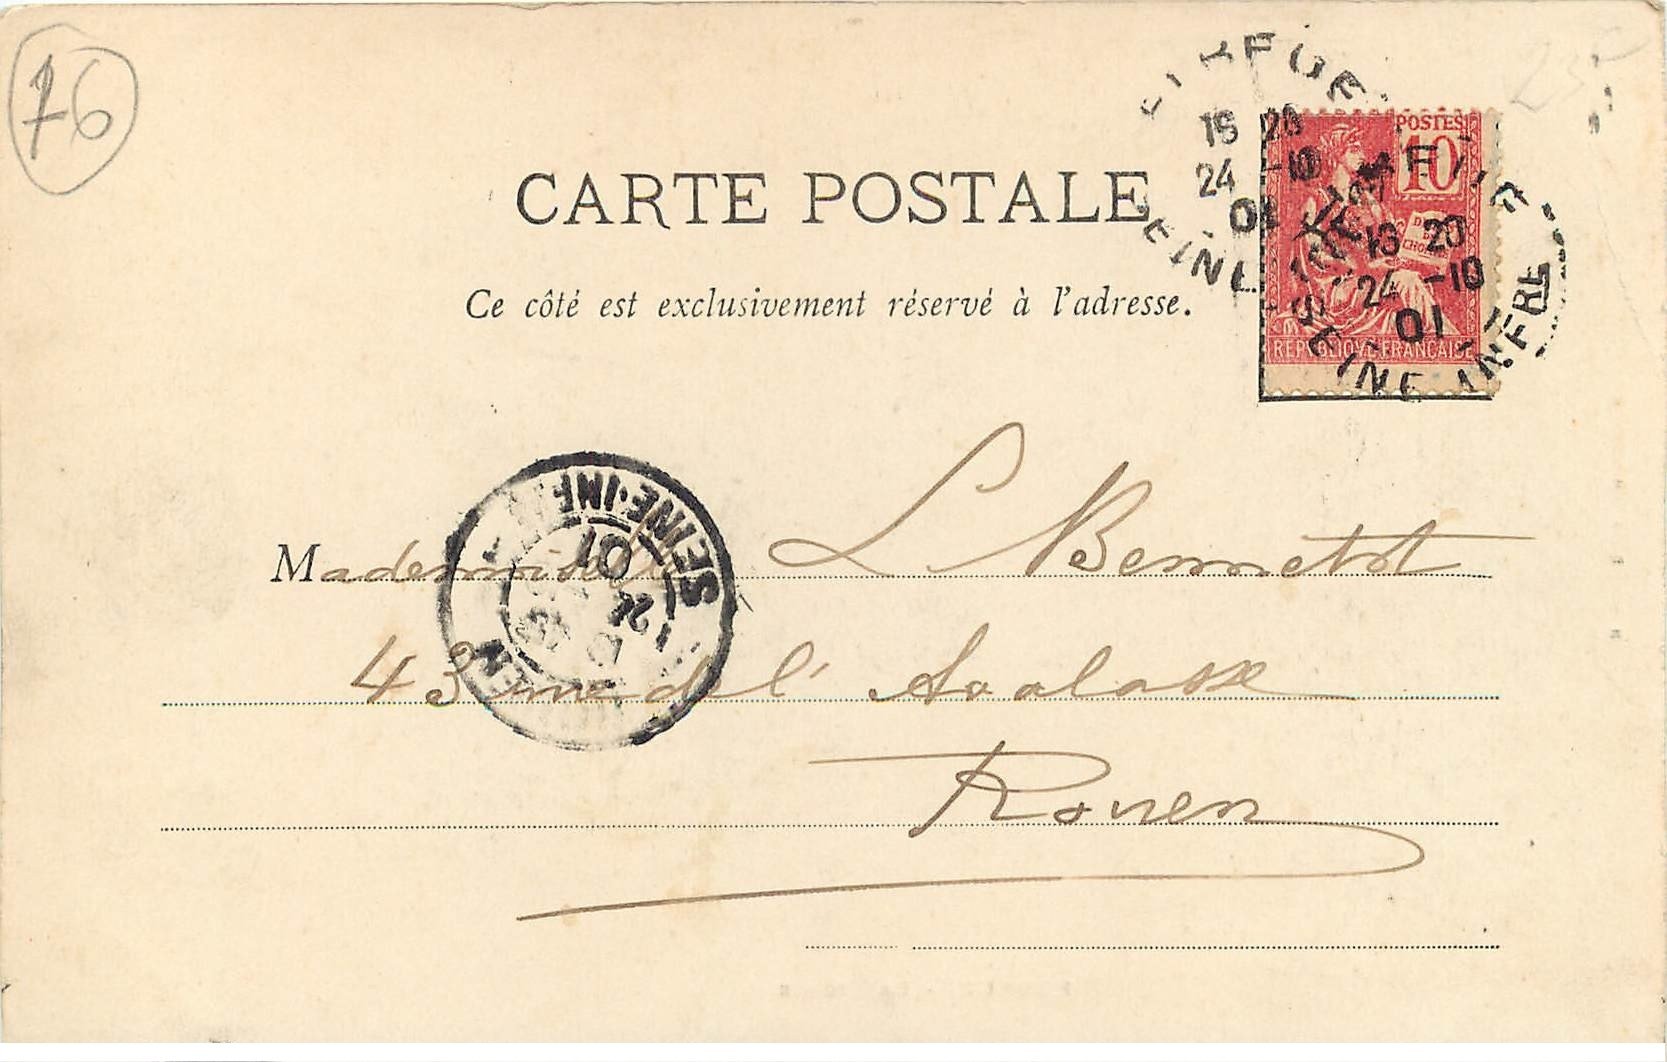 76
CARTE POSTALE
Ce côté est exclusivement réservé à l'adresse.
16 20
24 -10
01
POSTES
10
16 20
24 -10
01
SEINE INFRE
REPUBLIQUE FRANCAISE
SEINE-INF
01
Mademoiselle L Bennetot
43 rue de l'Avalasse
Rouen